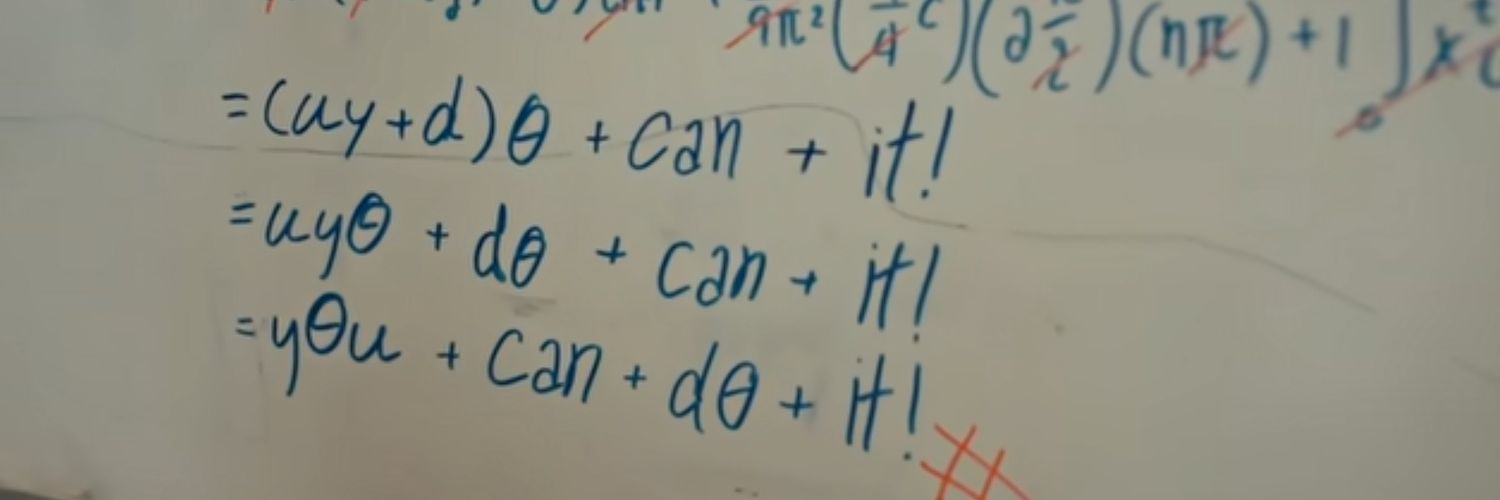 9π²(π/4 c)(∂π/2)(nπ) + 1 ] x
=(uy+d)θ + can + it!
=uyθ + dθ + can + it!
=yθu + can + dθ + it!